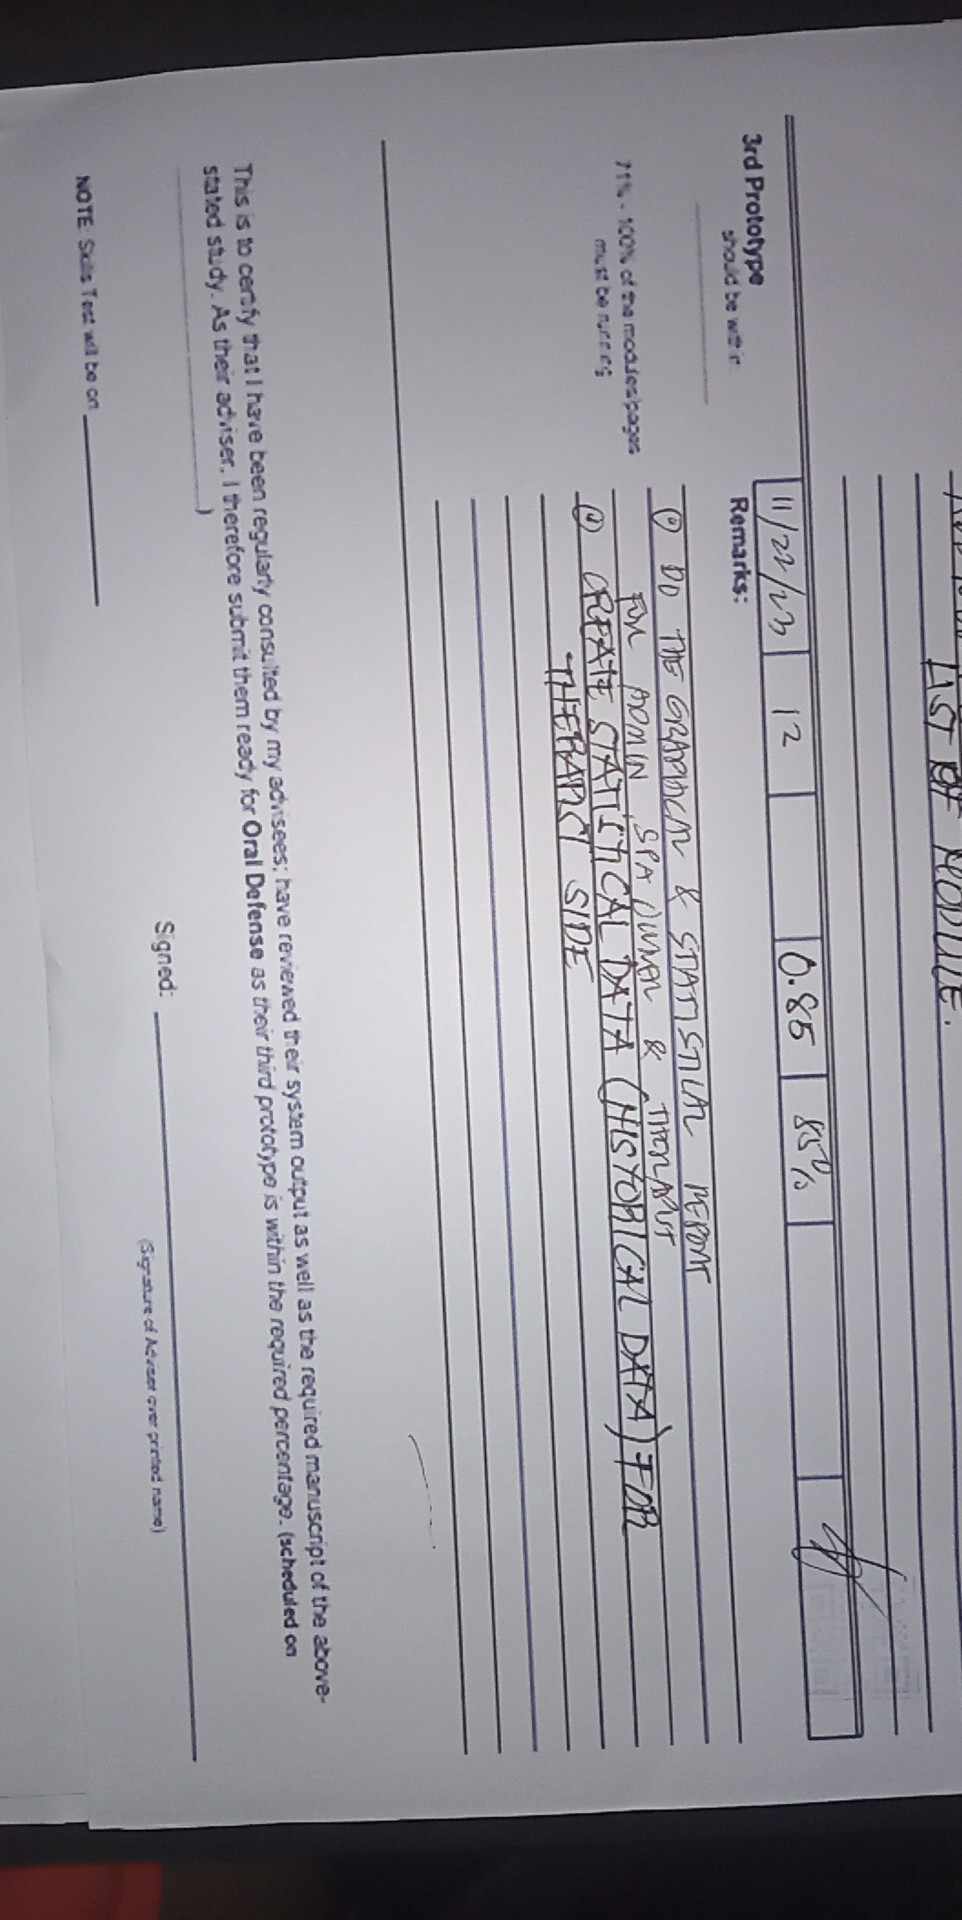 LIST OF MODULE.
11/22/23 12 0.85 85%
3rd Prototype
should be within
Remarks:
DO THE GRAPHICAL & STATISTICAL REPORT
FOR ADMIN, SPA OWNER & THERAPIST
71% - 100% of the modules/pages
must be running
CREATE STATISTICAL DATA (HISTORICAL DATA) FOR
THERAPIST SIDE
This is to certify that I have been regularly consulted by my advisees; have reviewed their system output as well as the required manuscript of the above-
stated study. As their adviser, I therefore submit them ready for Oral Defense as their third prototype is within the required percentage. (scheduled on
)
Signed:
(Signature of Adviser over printed name)
NOTE: Skills Test will be on